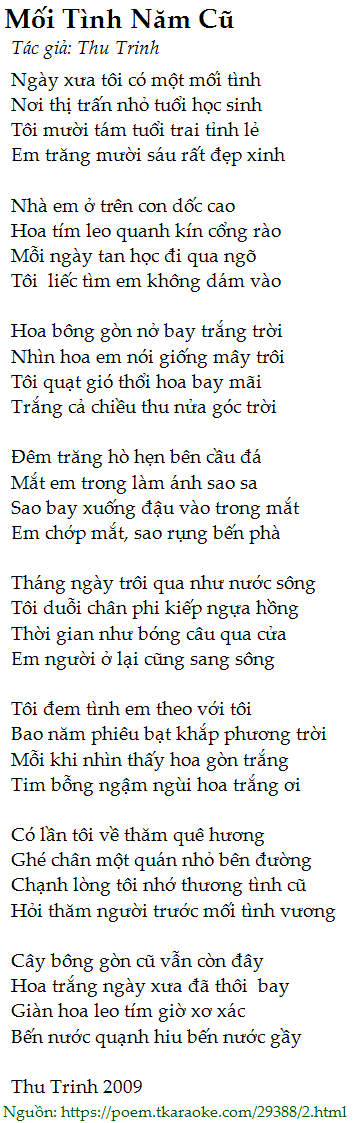 Mối Tình Năm Cũ
Tác giả: Thu Trinh
Ngày xưa tôi có một mối tình
Nơi thị trấn nhỏ tuổi học sinh
Tôi mười tám tuổi trai tỉnh lẻ
Em trăng mười sáu rất đẹp xinh
Nhà em ở trên con dốc cao
Hoa tím leo quanh kín cổng rào
Mỗi ngày tan học đi qua ngõ
Tôi  liếc tìm em không dám vào
Hoa bông gòn nở bay trắng trời
Nhìn hoa em nói giống mây trôi
Tôi quạt gió thổi hoa bay mãi
Trắng cả chiều thu nửa góc trời
Đêm trăng hò hẹn bên cầu đá
Mắt em trong làm ánh sao sa
Sao bay xuống đậu vào trong mắt
Em chớp mắt, sao rụng bến phà
Tháng ngày trôi qua như nước sông
Tôi duỗi chân phi kiếp ngựa hồng
Thời gian như bóng câu qua cửa
Em người ở lại cũng sang sông
Tôi đem tình em theo với tôi
Bao năm phiêu bạt khắp phương trời
Mỗi khi nhìn thấy hoa gòn trắng
Tim bỗng ngậm ngùi hoa trắng ơi
Có lần tôi về thăm quê hương
Ghé chân một quán nhỏ bên đường
Chạnh lòng tôi nhớ thương tình cũ
Hỏi thăm người trước mối tình vương
Cây bông gòn cũ vẫn còn đây
Hoa trắng ngày xưa đã thôi  bay
Giàn hoa leo tím giờ xơ xác
Bến nước quạnh hiu bến nước gầy
Thu Trinh 2009
Nguồn: https://poem.tkaraoke.com/29388/2.html